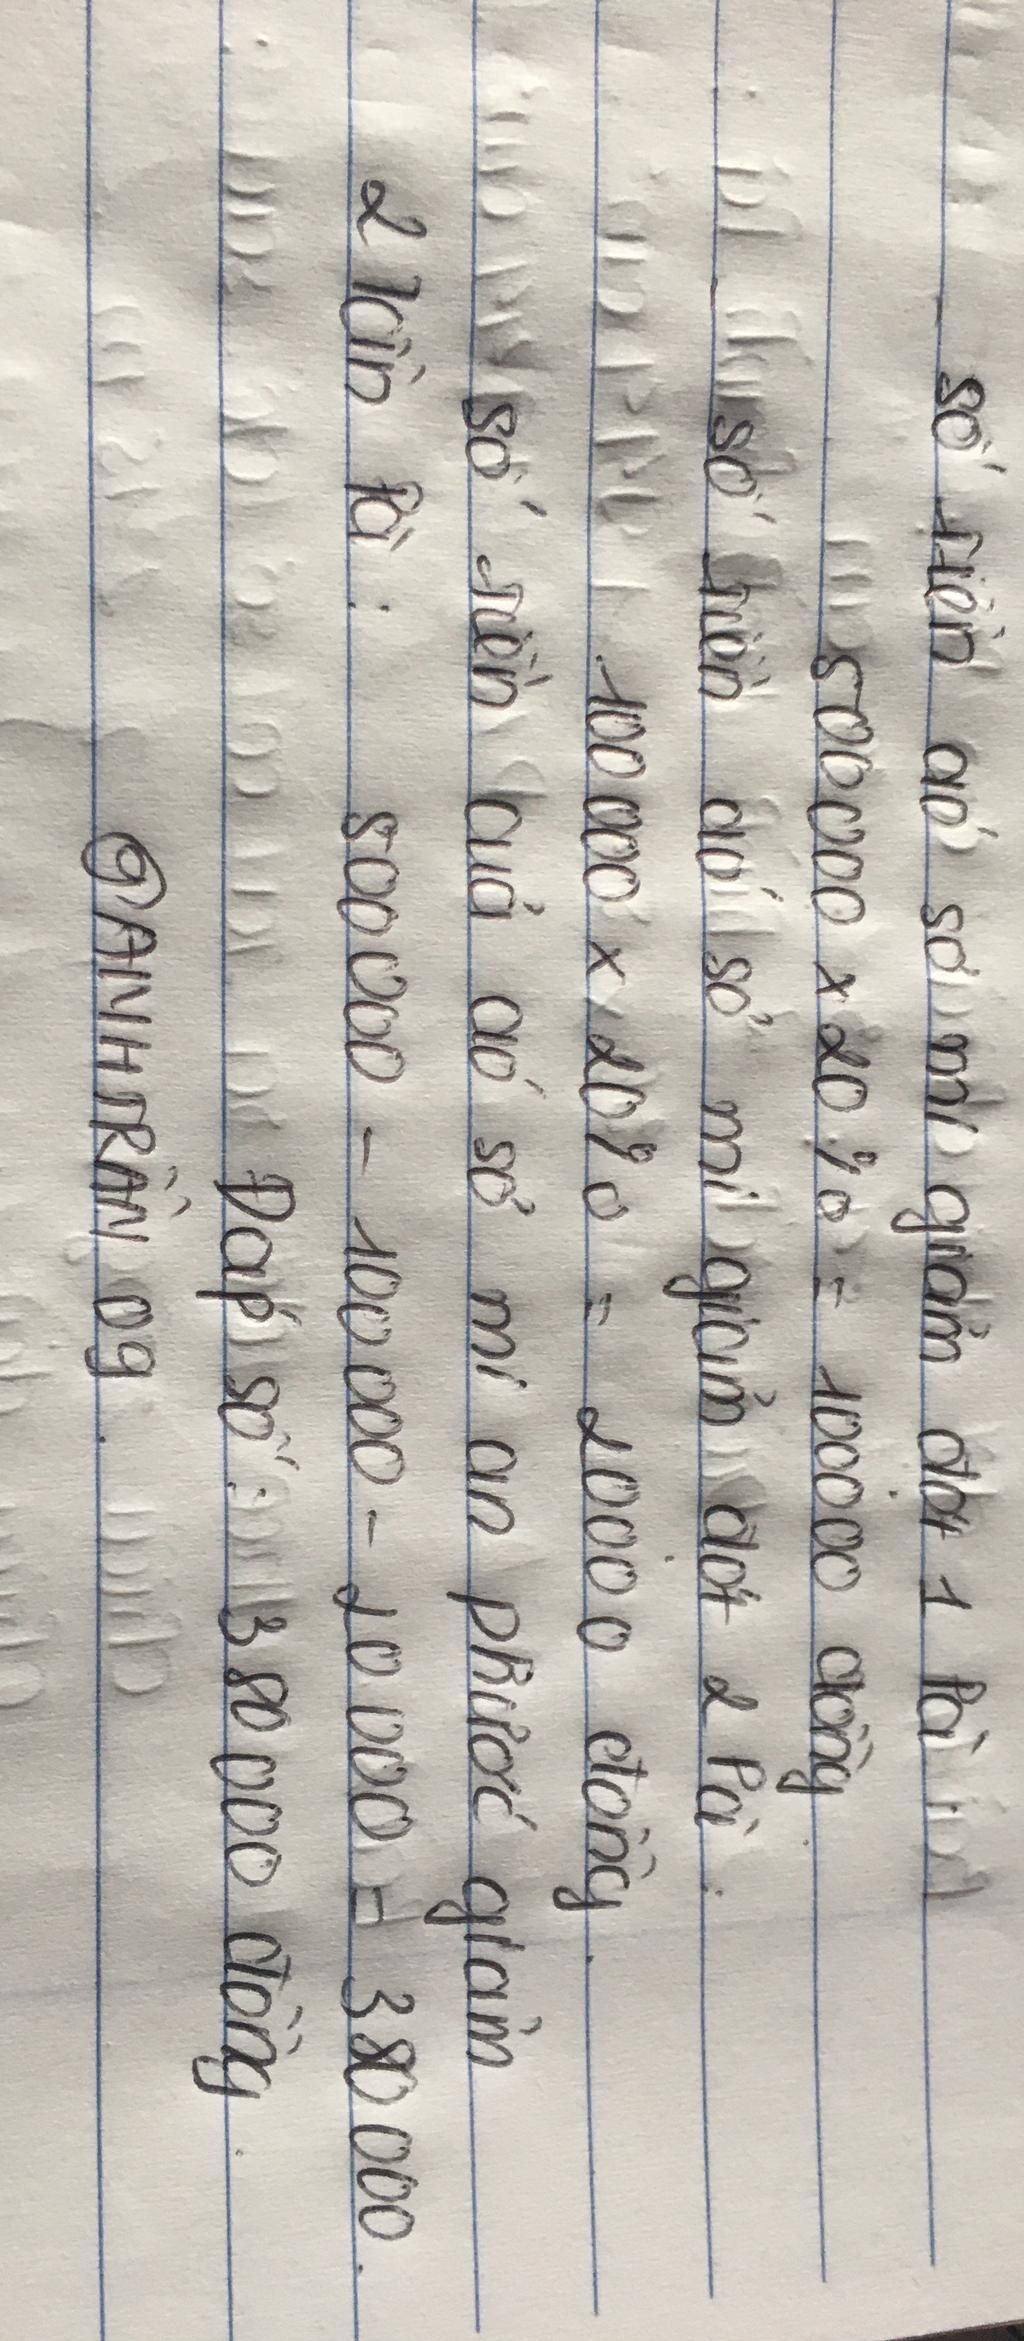 số tiền áo sơ mi giảm đợt 1 là
500000 x 20% = 100000 đồng
số tiền áo sơ mi giảm đợt 2 là :
100 000 x 20% = 20000 đồng.
số tiền của áo sơ mi an phước giảm
2 lần là : 500 000 - 100 000 - 20 000 = 380 000.
Đáp số : 380 000 đồng.
@ANHTRẦN 09.